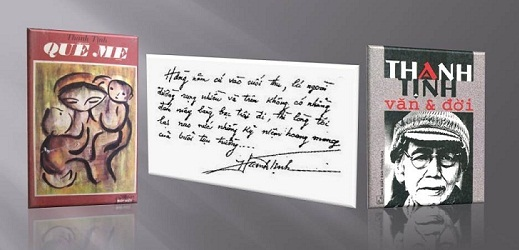 Thanh Tịnh
QUÊ MẸ
Hàng năm cứ vào cuối thu, lá ngoài
đường rụng nhiều và trên không có những
đám mây bàng bạc, lòng tôi
lại nao nức những kỷ niệm hoang mang
của buổi tựu trường...
Thanh Tịnh
THANH
TỊNH
văn & đời